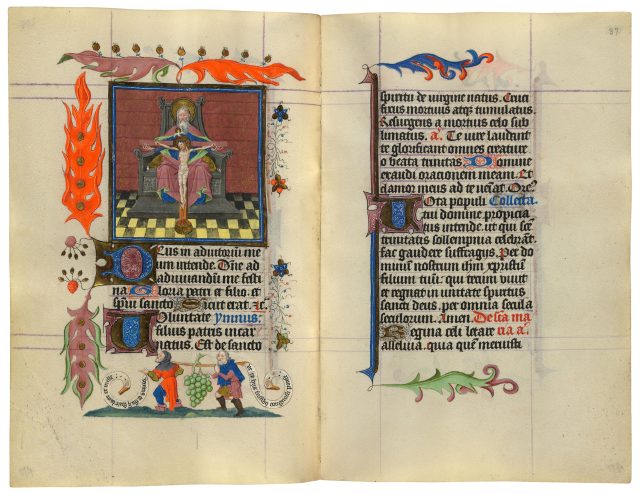 Deus in adiutoriū me
um intende. Dñe ad
adiuuandū me festi
na Gloria patri et filio. et
spūi sancto Sicut erat. zc.
Voluntate Ymnus.
filius patris incar
natus. Est de sancto
87
spiritu de virgine natus. Cruci
fixus mortuus atq; tumulatus.
Resurgens a mortuis celo sub
limatus. a. Te iure laudant
te glorificant omnes creature
o beata trinitas Domine
exaudi oracionem meam. Et
clamor meus ad te ueniat. Ore
Vota populi Collecta.
tui domine propicia
tus intende. ut qui sce
trinitatis sollempnia celebrat.
fac gaudere suffragijs. Per do
minū nostrum ihm xpistū
filium tuū. qui tecum viuit
et regnat in unitate spiritus
sancti deus. per omnia secula
seculorum. Amen De sca ma
Regina celi letare ria a
alleluia. quia quē meruisti